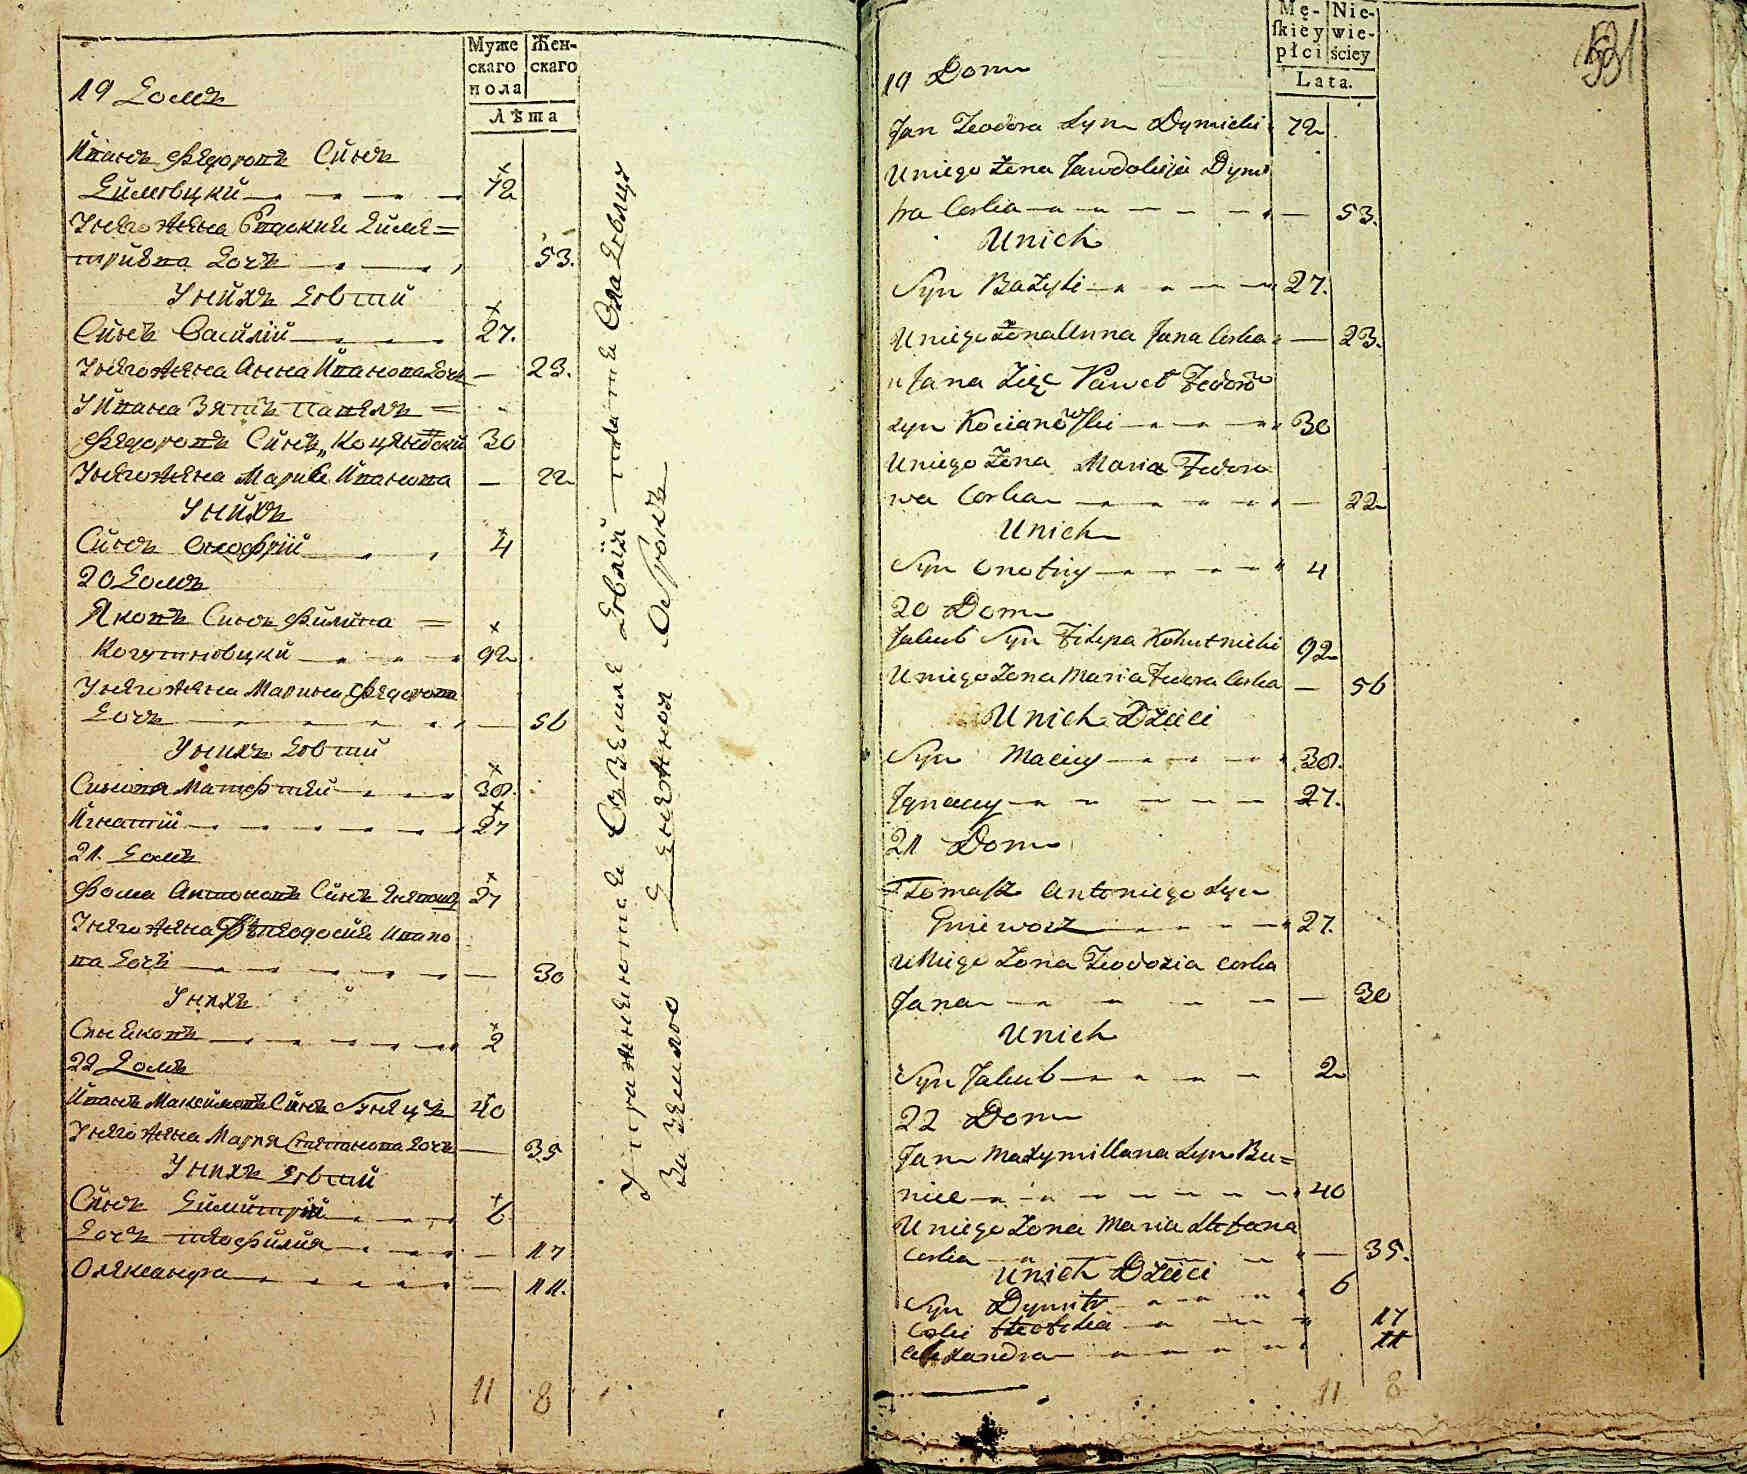 Муже
скаго
пола
Жен-
скаго
Лѣта
19 Домъ
Иванъ Федоровъ Синъ
Димовцкий 72
Унего Жена Евдокия Дими=
трива Дочъ 53.
Унихъ Дѣти
Синъ Василій 27.
Унего Жена Анна Иванова Дочъ — 23.
У Ивана Зять Павелъ =
Федоровъ Синъ Коцяновски 30
Унего Жена Мария Иванова — 22
Унихъ
Синъ Онофрій 4
20 Домъ
Яковъ Синъ Филипа =
Когутновцкий 92
Унего Жена Марина Федорова
Дочъ — 56
Унихъ Дѣти
Синовя Матфтей 38.
Игнатій 27
21. Домъ
Фома Антоновъ Синъ 27
Унего Жена Феодосия Ивано
ва Дочъ — 30
Унихъ
Синъ Яковъ 2
22 Домъ
Иванъ Максимовъ Синъ 40
Унего Жена Мария Степанова Дочъ — 35
Унихъ Дѣти
Синъ Димитрий 6
Дочъ Теофилия — 17
Олександра — 11.
11 8
Упражняются Въ земле
За земляное Денежной Оброкъ
Mę-
skiey
płci
Nie-
wie-
ściey
Lata.
19 Dom
Jan Teodora Syn Dymicki 72
Uniego Żena Jawdokija Dymi
tra Corka — 53.
Unich
Syn Bazyli 27.
Uniego Żena Anna Jana Corka — 23.
u Jana Zięc Paweł Fedoro
syn Kocianowski 30
Uniego Żona Maria Fedoro
wa Corka — 22
Unich
Syn Onofry 4
20 Dom
Jakub Syn Filipa Kohutnicki 92
Uniego Żona Maria Fedora Corka — 56
Unich Dzieci
Syn Maciey 38.
Jgnacy 27.
21 Dom
Tomasz Antoniego Syn
Gniewosz 27.
uNiego Żona Teodozia Corka
Jana — 30
Unich
Syn Jakub 2
22 Dom
Jan Maxymiliana Syn Bu=
nice 40
Uniego Żona Maria Stefana
Corka — 35.
Unich Dzieci
Syn Dymitr 6
Corki Teofilia 17
Alexandra 11
11 8